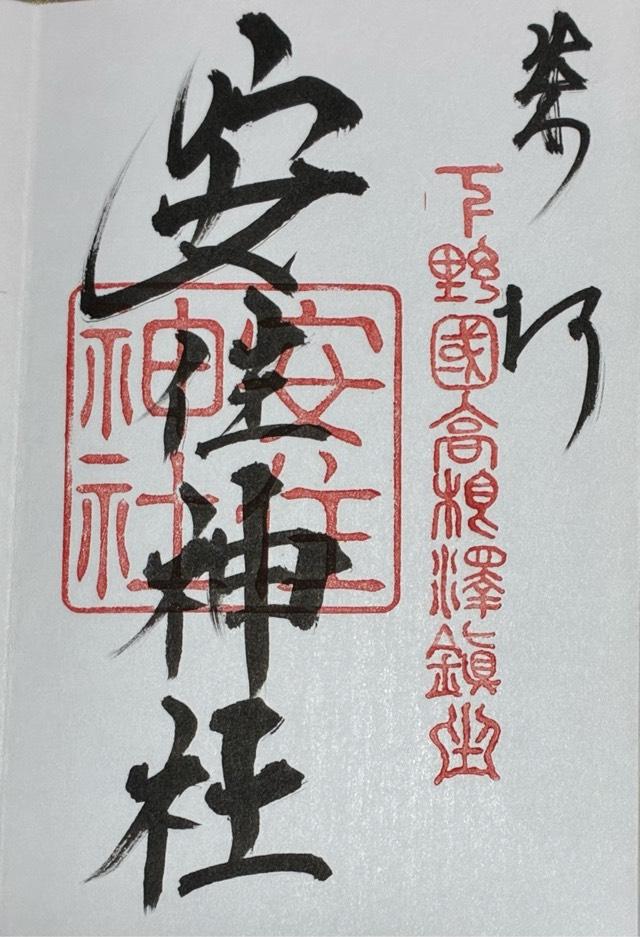 奉拝
下野國高根澤鎮坐
安住神社
安住
神社